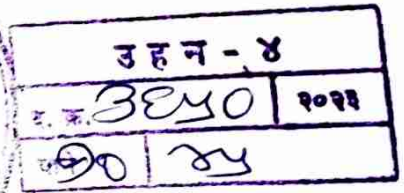 उहन - ४
द. क्र. ३६५० २०२३
१० ४५